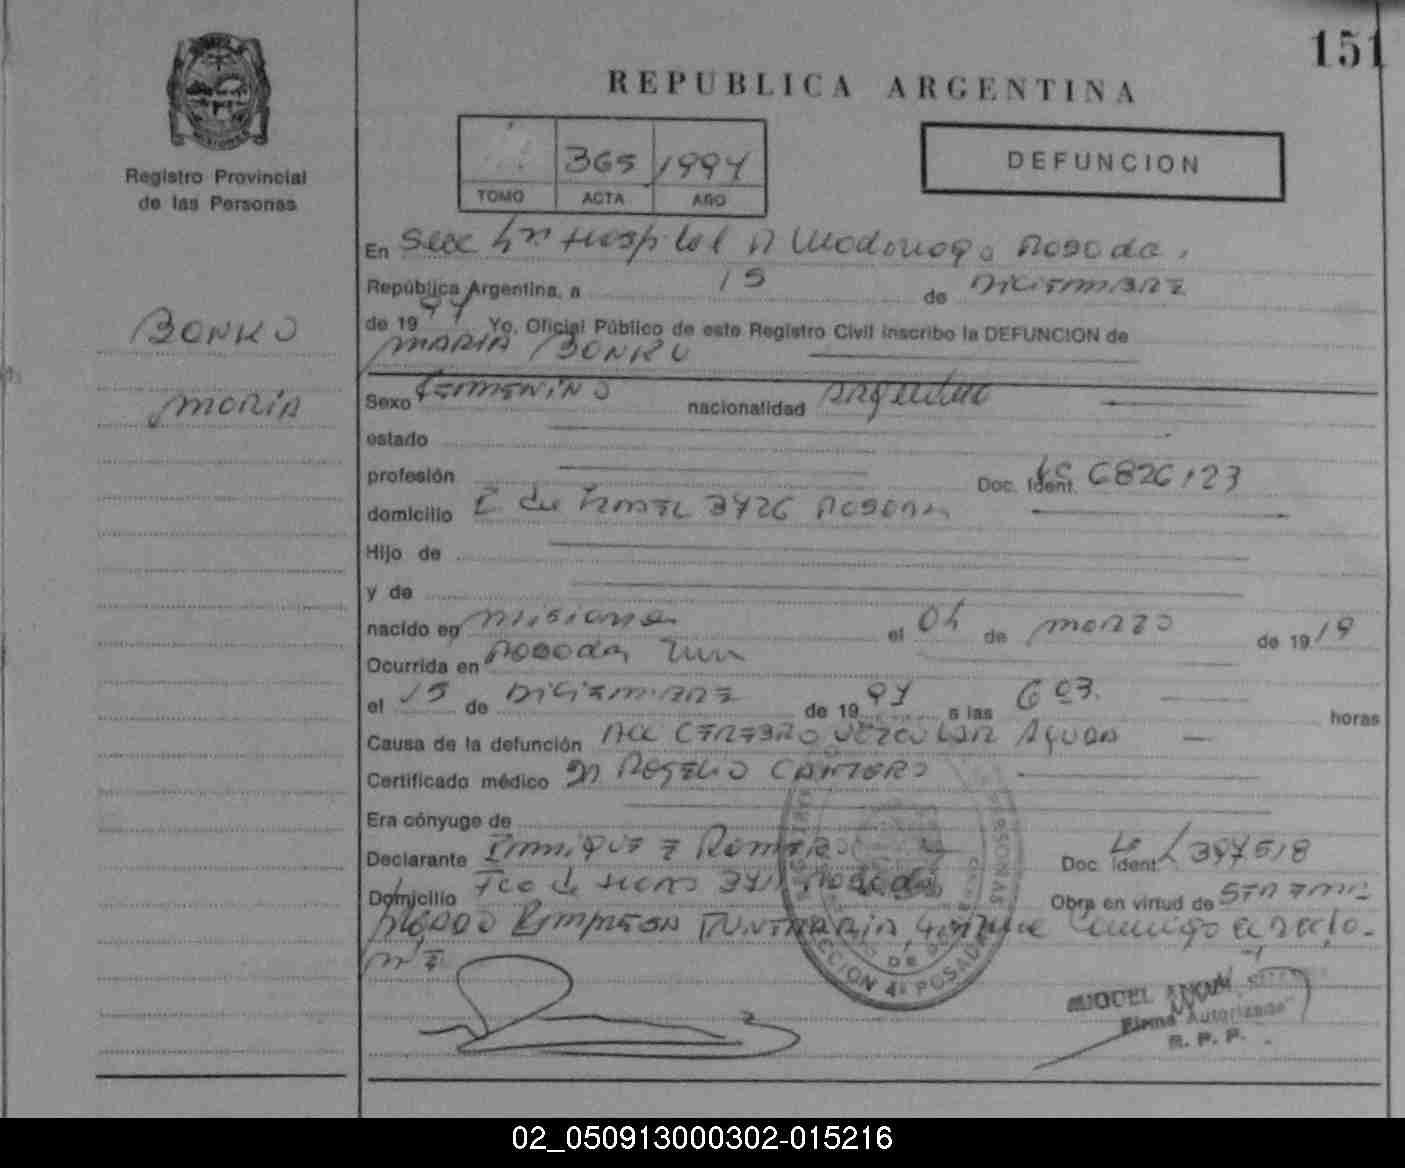 151
REPUBLICA ARGENTINA
Registro Provincial
de las Personas
365 1994
TOMO ACTA AÑO
DEFUNCION
BONKO
MARIA
En Secc 4ta Hospital R Madariaga Posadas
República Argentina, a 15 de DICIEMBRE
de 1994 Yo, Oficial Público de este Registro Civil inscribo la DEFUNCION de
MARIA BONKO
Sexo FEMENINO nacionalidad argentina
estado
profesión Doc. Ident. LC 6826123
domicilio 3426 POSADAS
Hijo de
y de
nacido en Misiones el 04 de MARZO de 1919
Ocurrida en Posadas
el 15 de DICIEMBRE de 1994 a las 6 03 horas
Causa de la defunción ACC CEREBRO VASCULAR AGUDO
Certificado médico Dr ROGELIO CANTERO
Era cónyuge de
Declarante ENRIQUE E ROMERO Doc. Ident. LE
Domicilio Fco de Haro Posadas Obra en virtud de SER EMPLEADO EMPRESA FUNERARIA, firma conmigo el acta.
SECCION 4ª POSADAS
MIGUEL ANGEL
Firma Autorizada
R. P. P.
02_050913000302-015216